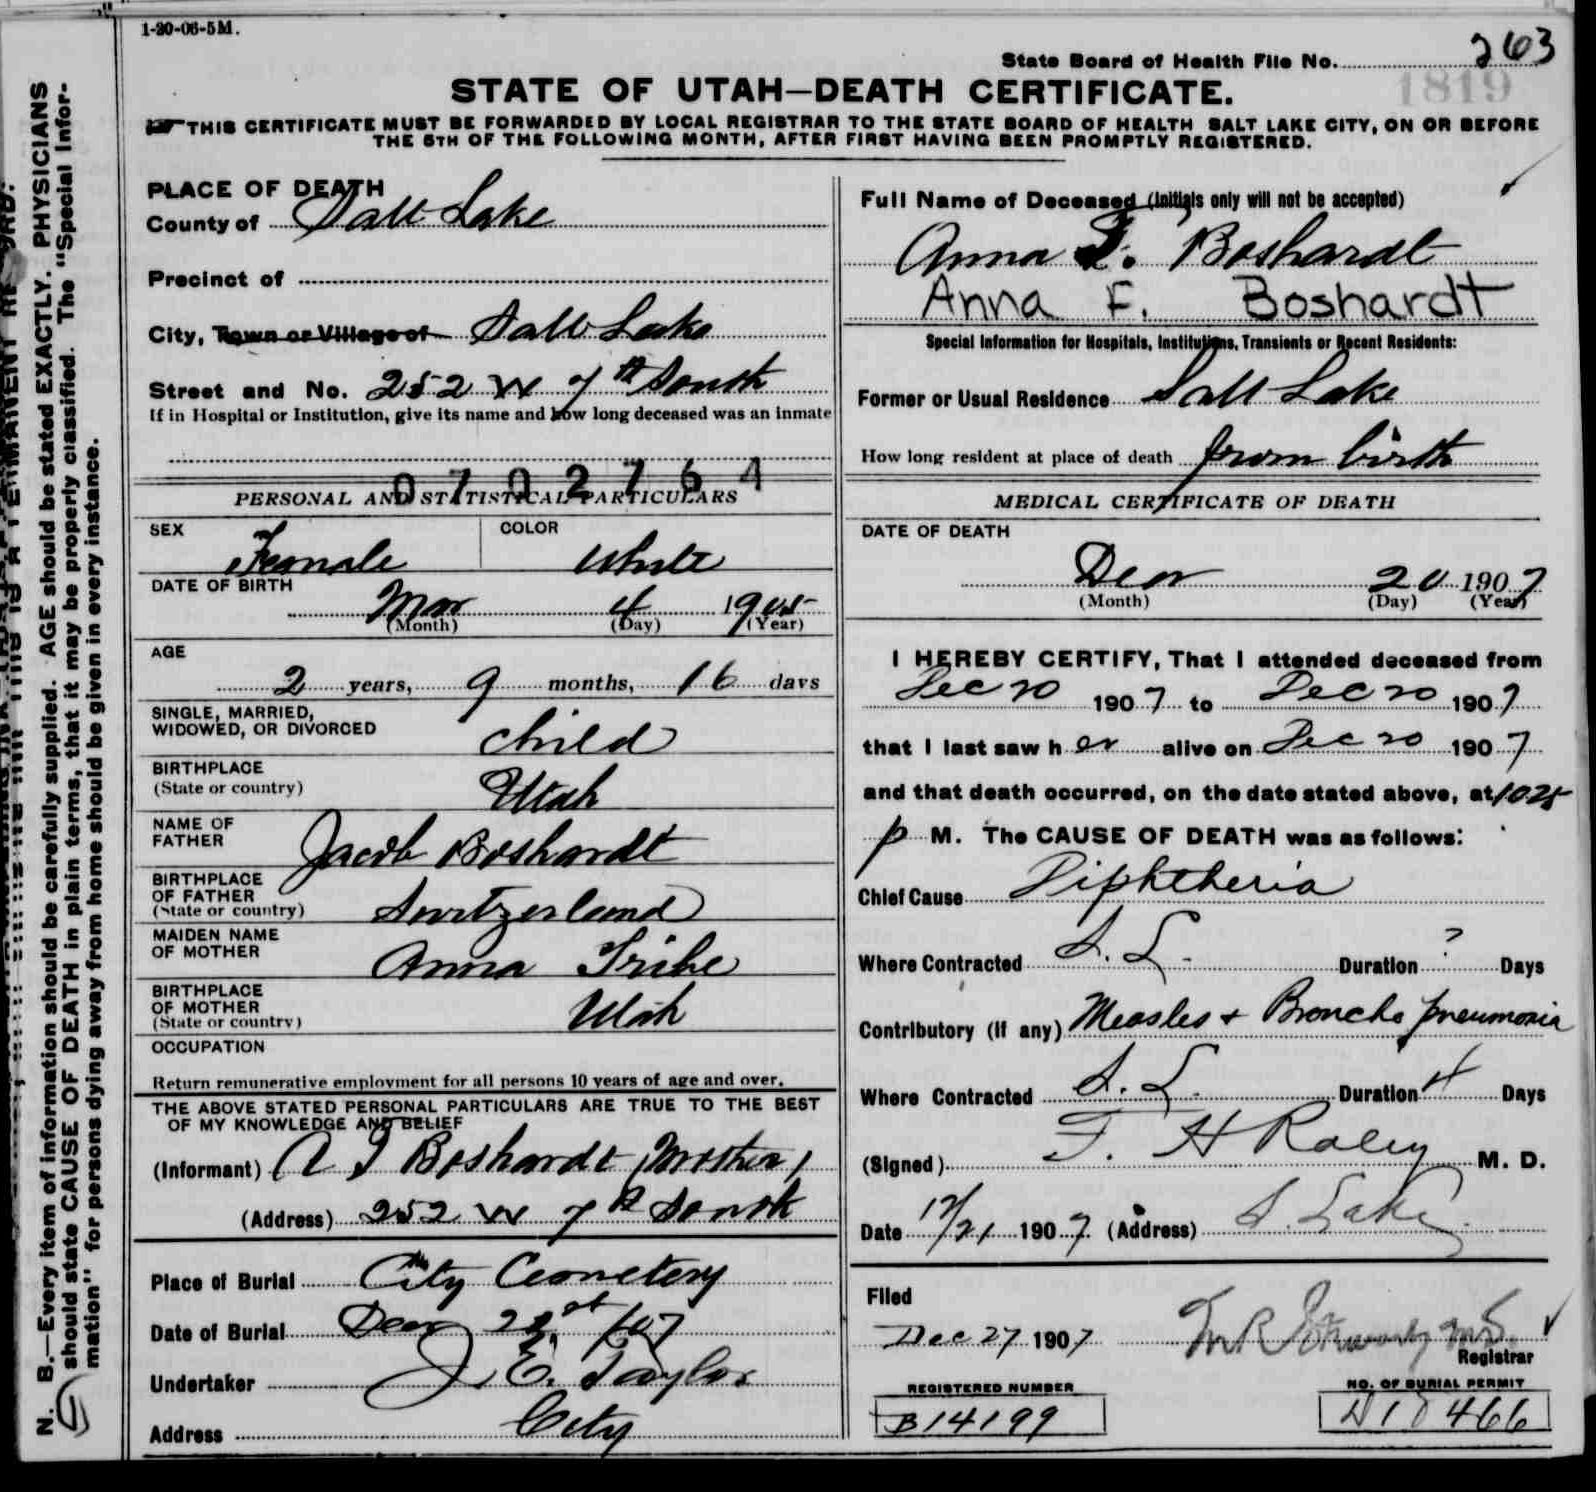 1-20-06-5M.
State Board of Health File No. 263
1819
STATE OF UTAH—DEATH CERTIFICATE.
THIS CERTIFICATE MUST BE FORWARDED BY LOCAL REGISTRAR TO THE STATE BOARD OF HEALTH SALT LAKE CITY, ON OR BEFORE
THE 5TH OF THE FOLLOWING MONTH, AFTER FIRST HAVING BEEN PROMPTLY REGISTERED.
N. B.—Every item of information should be carefully supplied. AGE should be stated EXACTLY. PHYSICIANS
should state CAUSE OF DEATH in plain terms, that it may be properly classified. The "Special Infor-
mation" for persons dying away from home should be given in every instance.
PLACE OF DEATH
County of Salt Lake
Precinct of
City, Town or Village of Salt Lake
Street and No. 252 W 7th South
If in Hospital or Institution, give its name and how long deceased was an inmate
0702764
PERSONAL AND STATISTICAL PARTICULARS
SEX Female
COLOR White
DATE OF BIRTH
Mar 4 1905
(Month) (Day) (Year)
AGE
2 years, 9 months, 16 days
SINGLE, MARRIED,
WIDOWED, OR DIVORCED child
BIRTHPLACE
(State or country) Utah
NAME OF
FATHER Jacob Boshardt
BIRTHPLACE
OF FATHER
(State or country) Switzerland
MAIDEN NAME
OF MOTHER Anna Tribe
BIRTHPLACE
OF MOTHER
(State or country) Utah
OCCUPATION
Return remunerative employment for all persons 10 years of age and over.
THE ABOVE STATED PERSONAL PARTICULARS ARE TRUE TO THE BEST
OF MY KNOWLEDGE AND BELIEF
(Informant) A T Boshardt (Mother)
(Address) 252 W 7th South
Place of Burial City Cemetery
Date of Burial Decr 21st 1907
Undertaker J. E. Taylor
Address City
Full Name of Deceased (Initials only will not be accepted)
Anna F. Boshardt
Anna F. Boshardt
Special Information for Hospitals, Institutions, Transients or Recent Residents:
Former or Usual Residence Salt Lake
How long resident at place of death from birth
MEDICAL CERTIFICATE OF DEATH
DATE OF DEATH
Decr 20 1907
(Month) (Day) (Year)
I HEREBY CERTIFY, That I attended deceased from
Dec 20 1907 to Dec 20 1907
that I last saw her alive on Dec 20 1907
and that death occurred, on the date stated above, at 1025
p M. The CAUSE OF DEATH was as follows:
Chief Cause Diphtheria
Where Contracted S. L. Duration ? Days
Contributory (if any) Measles + Broncho pneumonia
Where Contracted S. L. Duration 4 Days
(Signed) F. H Raley M. D.
Date 12/21 1907 (Address) S. Lake
Filed
Dec 27 1907
Registrar
REGISTERED NUMBER
B14199
NO. OF BURIAL PERMIT
466